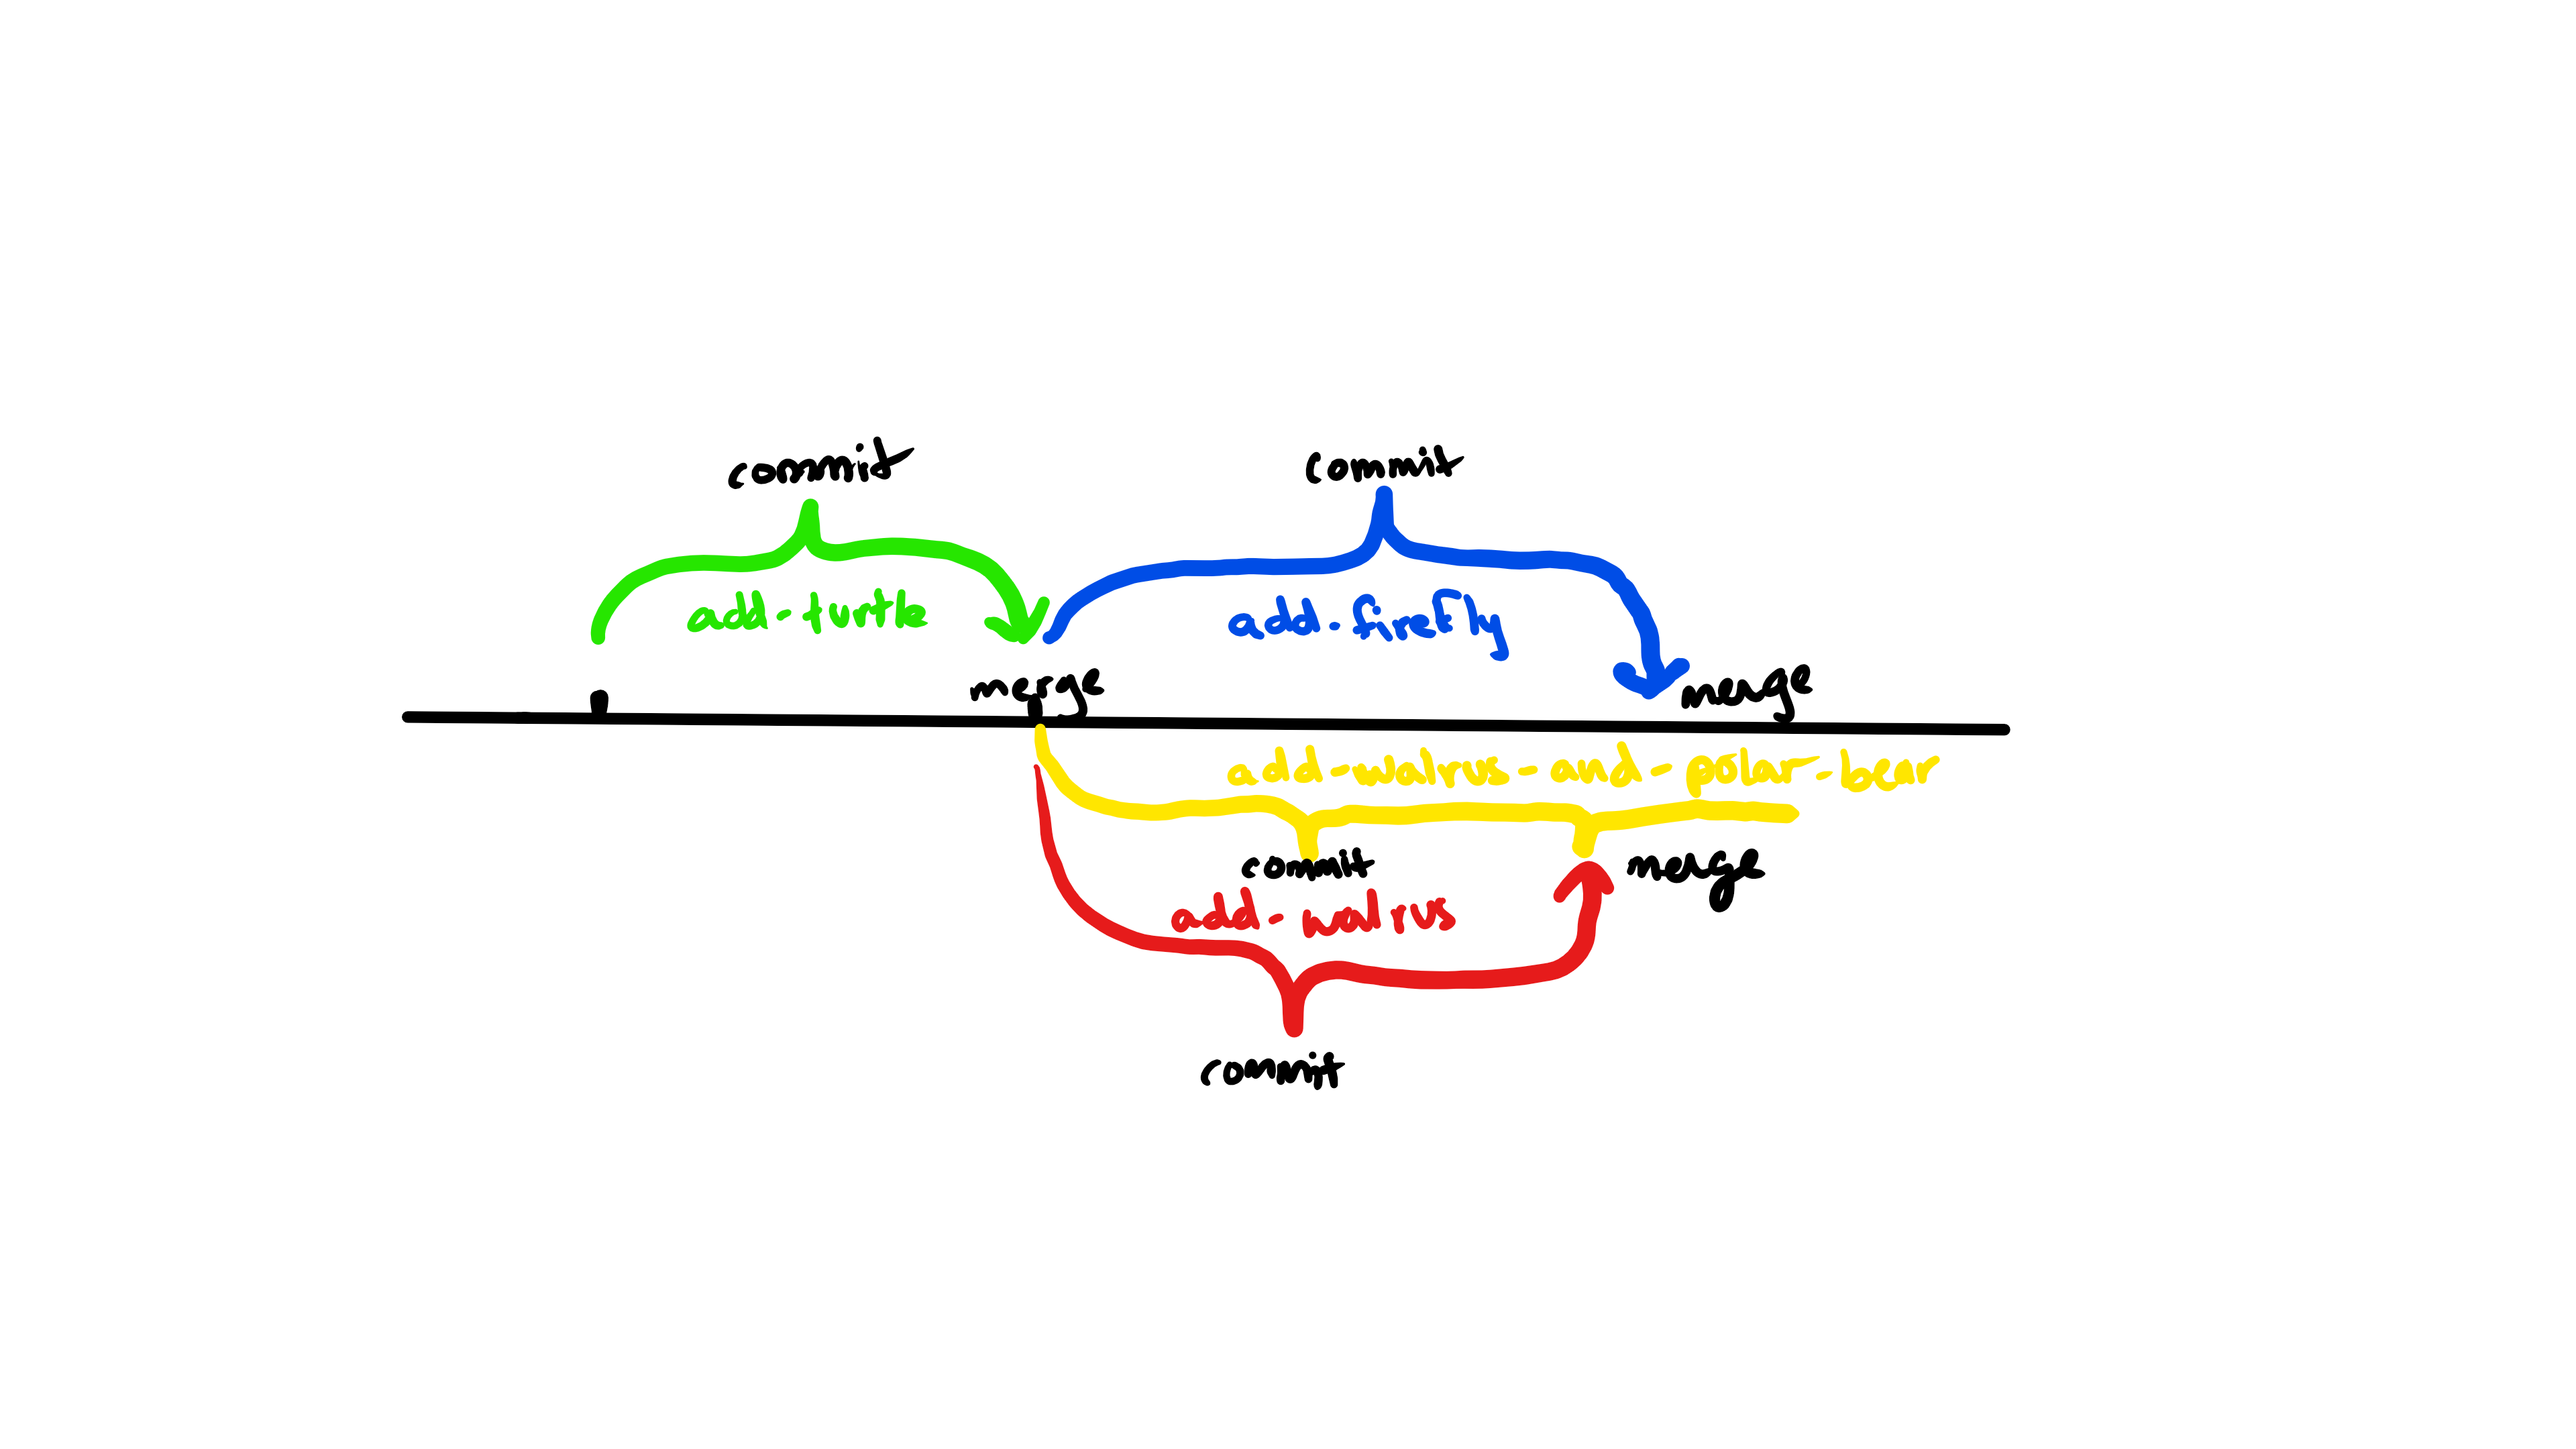 commit
commit
add-turtle
add-firefly
merge
merge
add-walrus-and-polar-bear
commit
merge
add-walrus
commit